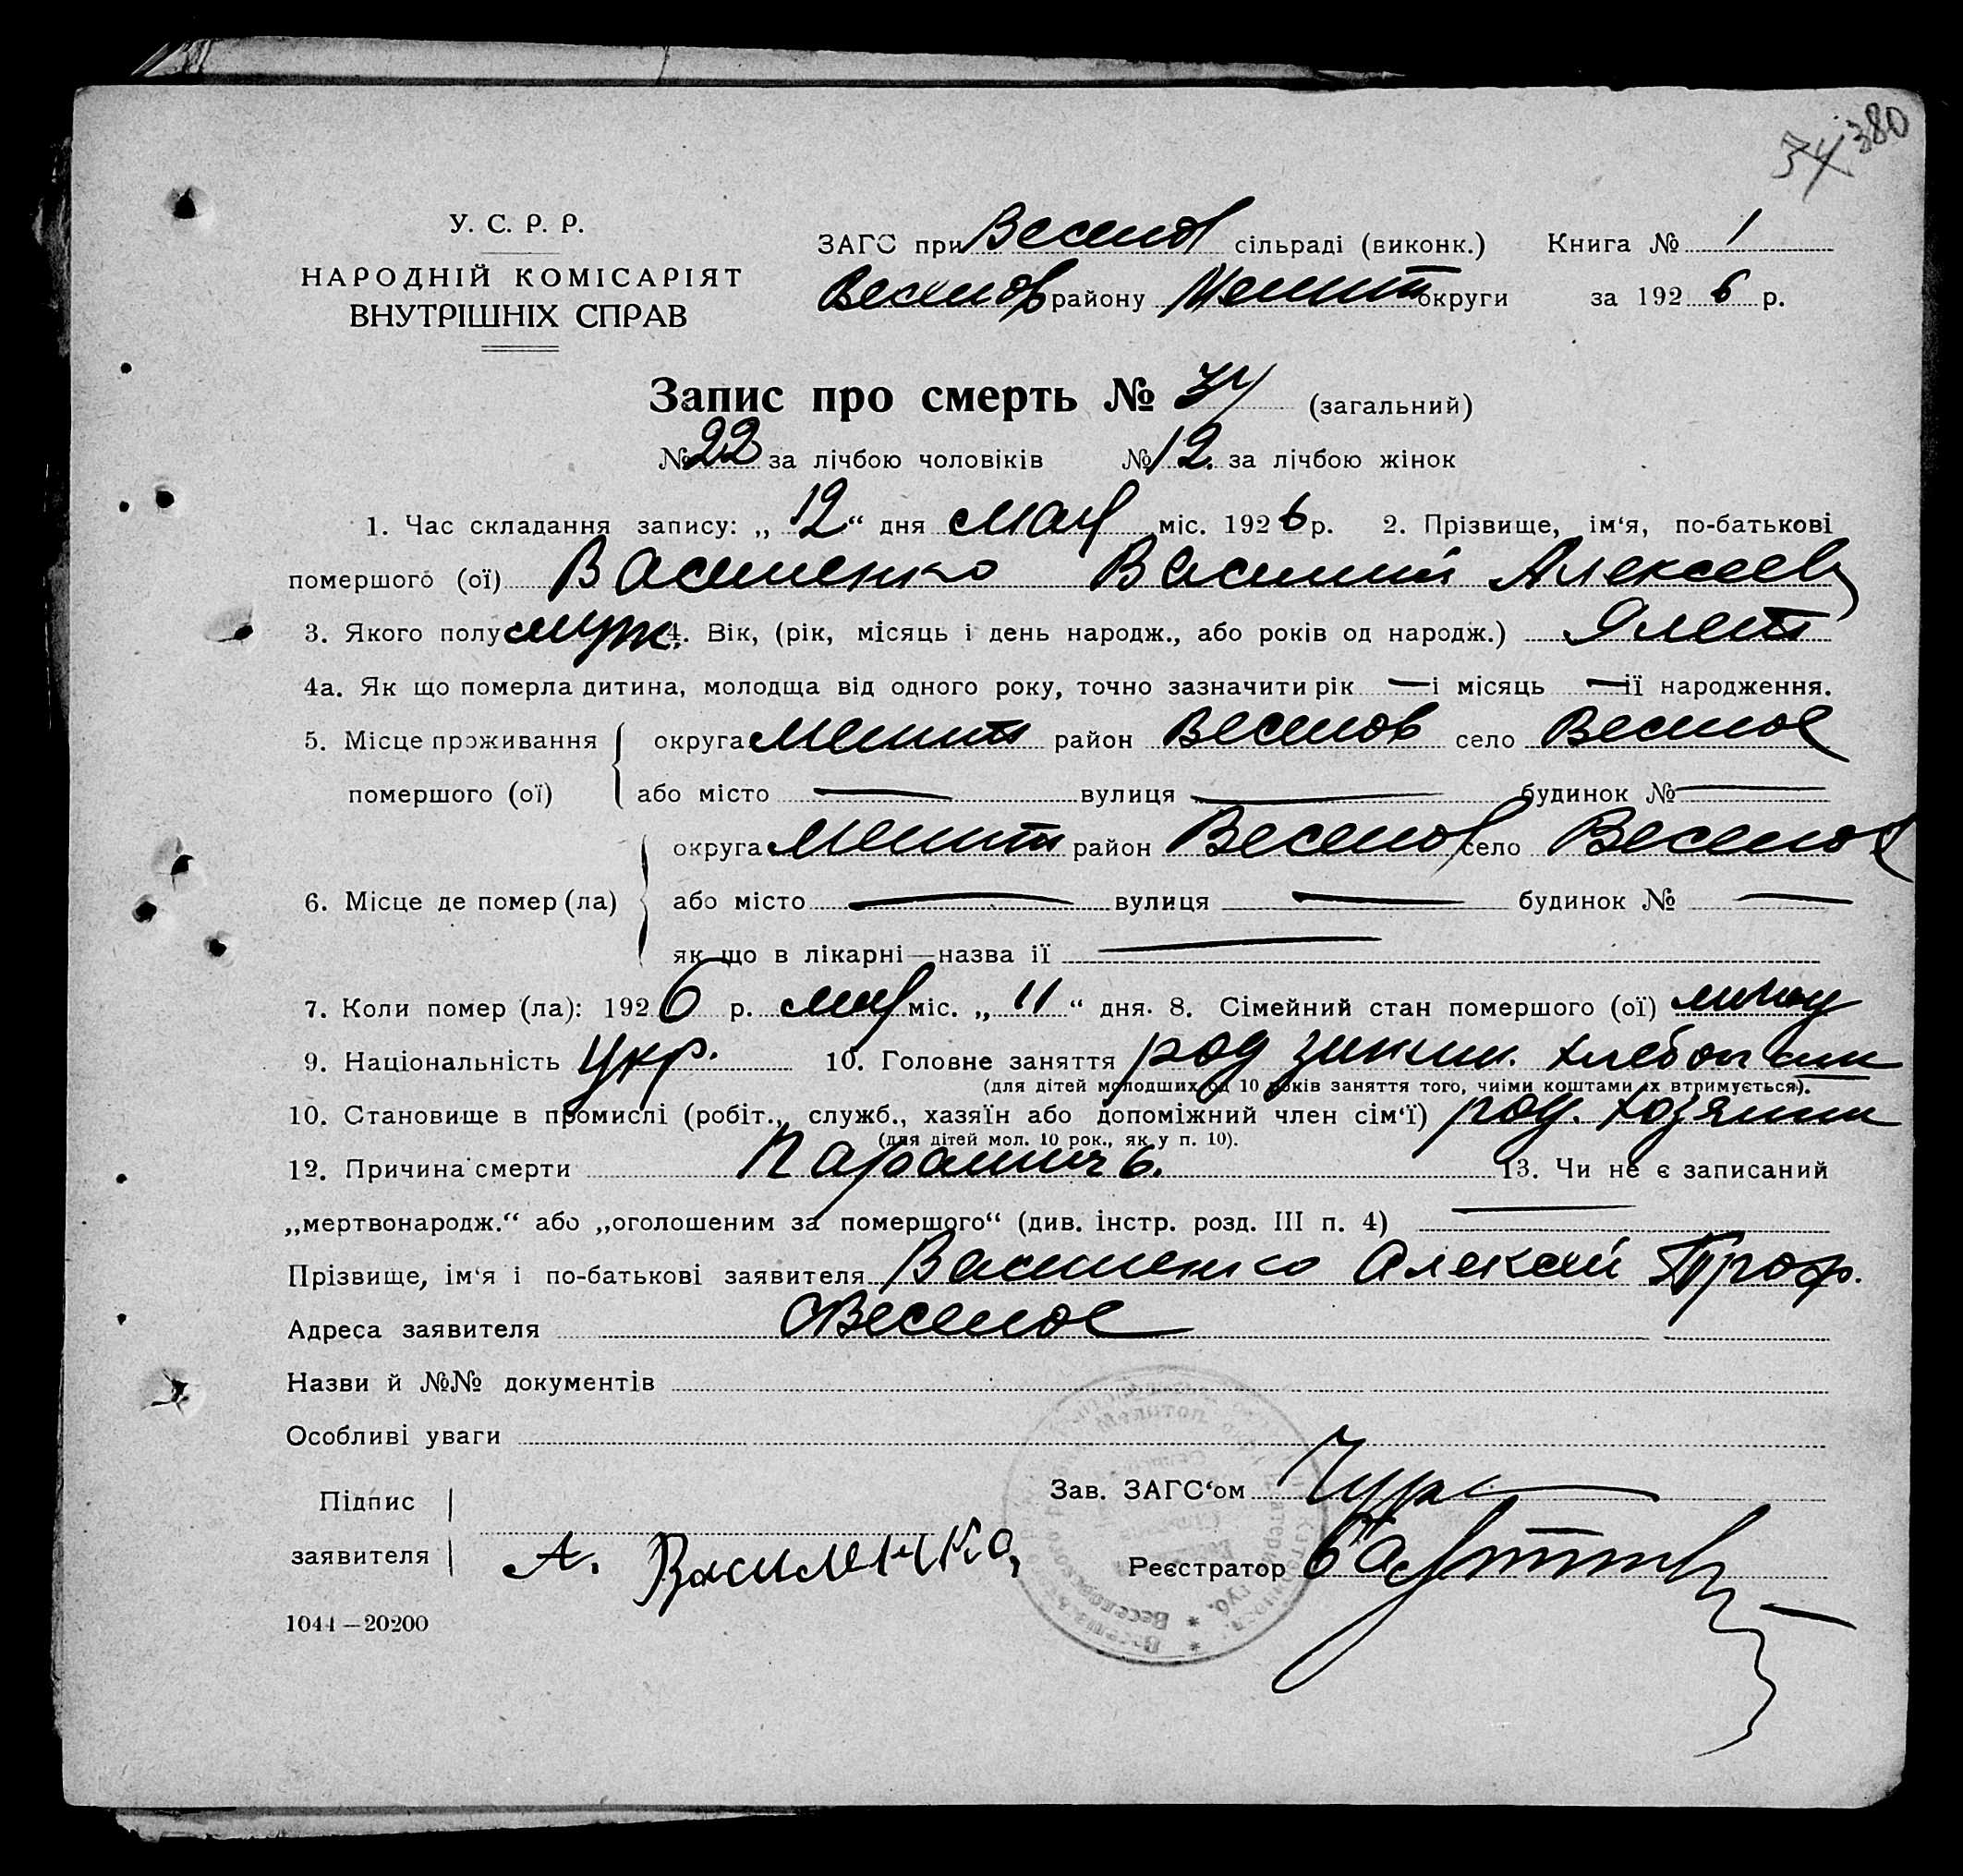 34 380
У. С. Р. Р.
НАРОДНІЙ КОМІСАРІЯТ
ВНУТРІШНІХ СПРАВ
ЗАГС при Веселов сільраді (виконк.) Книга № 1
Веселов району Мелит округи за 1926 р.
Запис про смерть № 34 (загальний)
№ 22 за лічбою чоловіків № 12. за лічбою жінок
1. Час складання запису: „12“ дня мая міс. 1926 р. 2. Прізвище, ім‘я, по-батькові
помершого (ої) Василенко Василий Алексеев
3. Якого полу муж. 4. Вік, (рік, місяць і день народж., або років од народж.) лет
4а. Як що померла дитина, молодща від одного року, точно зазначити рік — і місяць — ії народження.
5. Місце проживання округа Мелит район Веселов село Веселое
помершого (ої) або місто — вулиця — будинок № —
округа Мелит район Веселов село Веселое
6. Місце де помер (ла) або місто — вулиця — будинок № —
як що в лікарні—назва ії —
7. Коли помер (ла): 1926 р. мая міс. „11“ дня. 8. Сімейний стан помершого (ої)
9. Національність Укр. 10. Головне заняття род хлебопаш
(для дітей молодших од 10 років заняття того, чиіми коштами їх втримується).
10. Становище в промислі (робіт., служб., хазяїн або допоміжний член сім‘ї) род. хозяин
(для дітей мол. 10 рок., як у п. 10).
12. Причина смерти Паралич 13. Чи не є записаний
„мертвонародж.“ або „оголошеним за помершого“ (див. інстр. розд. III п. 4) —
Прізвище, ім‘я і по-батькові заявителя Василенко Алексей Троф.
Адреса заявителя с Веселое
Назви й №№ документів
Особливі уваги
Підпис Зав. ЗАГС‘ом
заявителя А. Василенко Реєстратор
1044—20200